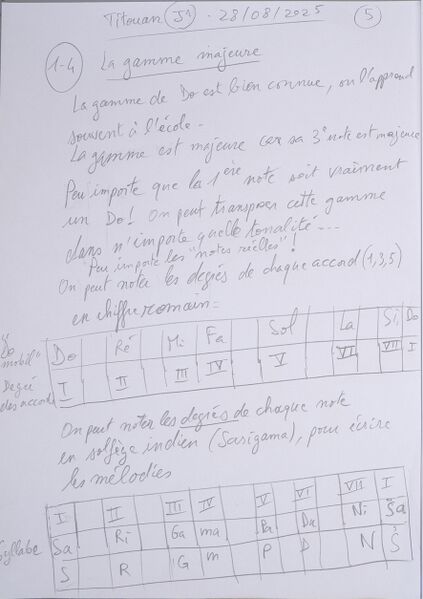 Titouan J1 - 28/08/2025 5
1-4 La gamme majeure
La gamme de Do est bien connue, on l'apprend
souvent à l'école.
La gamme est majeure car sa 3e note est majeure
Peu importe que la 1ère note soit vraiment
un Do! On peut transposer cette gamme
dans n'importe quelle tonalité...
Peu importe les "notes réelles"!
On peut noter les degrés de chaque accord (1,3,5)
en chiffre romain:
"Do mobil" Do Ré Mi Fa Sol La Si Do
Degré des accord I II III IV V VI VII I
On peut noter les degrés de chaque note
en solfège indien (Sarigama), pour écrire
les mélodies
I II III IV V VI VII I
Syllabe Sa Ri Ga ma Pa Da Ni Ṡa
S R G m P D N Ṡ